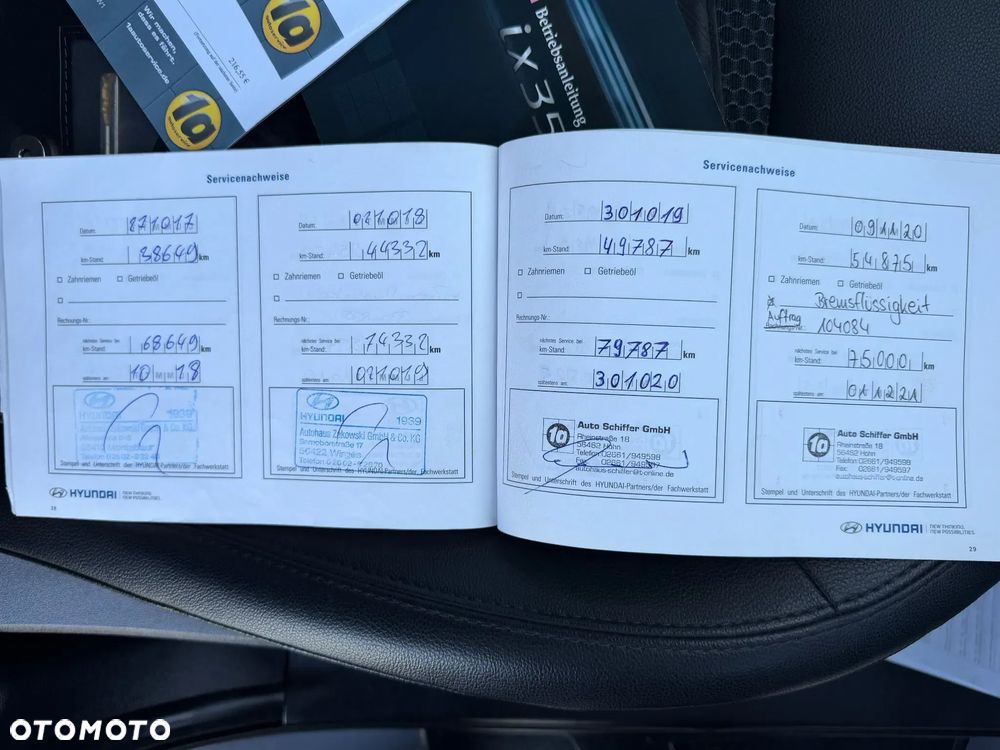 Wir machen,
dass es fährt.
1aautoservice.de
216,55 €
1a
autoservice
1a
autoservice
Betriebsanleitung
ix35
Servicenachweise
Datum: 271017
km-Stand: 38649 km
Zahnriemen Getriebeöl
Rechnungs-Nr.:
nächstes Service bei
km-Stand: 68649 km
spätestens am: 10 18
HYUNDAI
1939
Stempel und Unterschrift des HYUNDAI-Partners/der Fachwerkstatt
Datum: 021018
km-Stand: 44332 km
Zahnriemen Getriebeöl
Rechnungs-Nr.:
nächstes Service bei
km-Stand: 74332 km
spätestens am: 021019
HYUNDAI
1939
Stempel und Unterschrift des HYUNDAI-Partners/der Fachwerkstatt
HYUNDAI NEW THINKING. NEW POSSIBILITIES.
28
Servicenachweise
Datum: 301019
km-Stand: 49787 km
Zahnriemen Getriebeöl
Rechnungs-Nr.:
nächstes Service bei
km-Stand: 79787 km
spätestens am: 301020
1a
Auto Schiffer GmbH
Rheinstraße 18
56462 Höhn
Telefon 02661/949598
Fax: 02661/949597
autohaus-schiffer@t-online.de
Stempel und Unterschrift des HYUNDAI-Partners/der Fachwerkstatt
Datum: 091120
km-Stand: 54875 km
Zahnriemen Getriebeöl
Bremsflüssigkeit
Auftrag 104084
nächstes Service bei
km-Stand: 75000 km
spätestens am: 011221
1a
Auto Schiffer GmbH
Rheinstraße 18
56462 Höhn
Telefon 02661/949598
Fax: 02661/949597
autohaus-schiffer@t-online.de
Stempel und Unterschrift des HYUNDAI-Partners/der Fachwerkstatt
HYUNDAI NEW THINKING. NEW POSSIBILITIES.
29
OTOMOTO